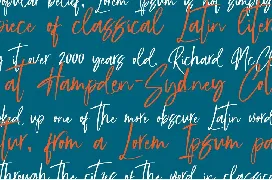 opular belief, Lorem Ipsum is not simply
piece of classical Latin liter
g it over 2000 years old. Richard McC
at Hampden-Sydney Col
ked up one of the more obscure Latin word
tur, from a Lorem Ipsum pa
through the cites of the word in classica